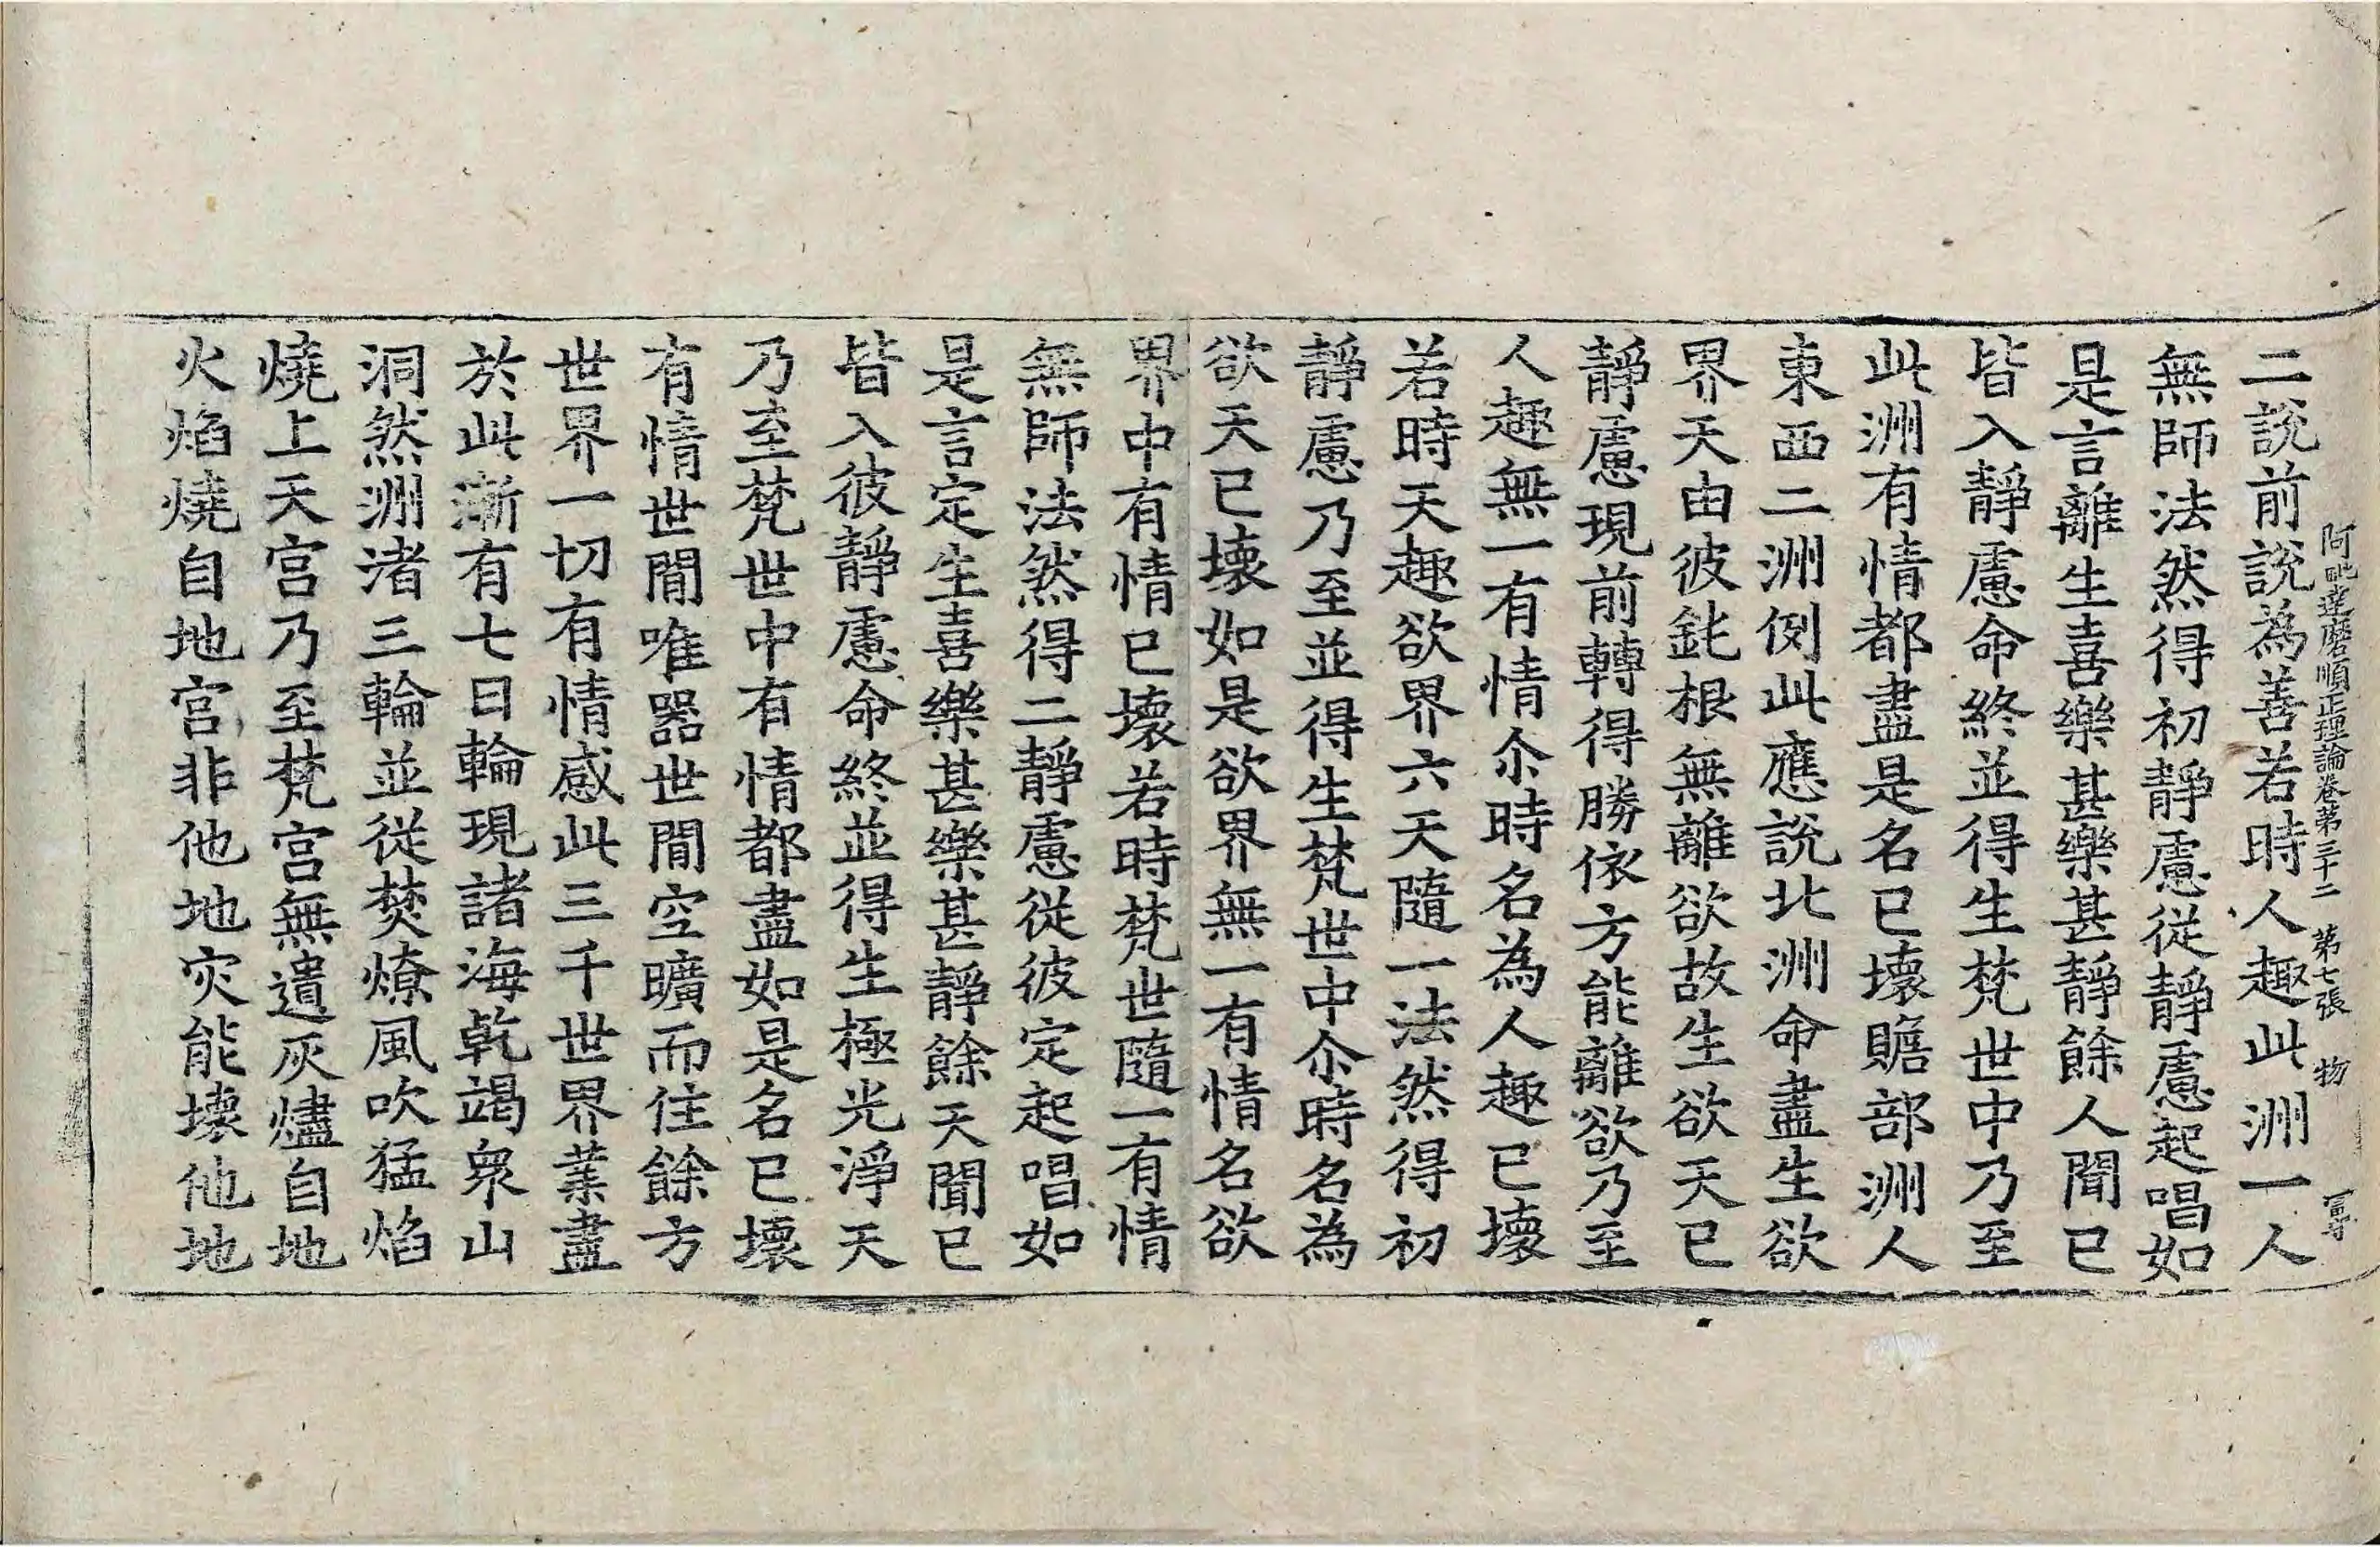 阿毗達磨順正理論卷第三十二 第七張 物
二說前說為善若時人趣此洲一人
無師法然得初靜慮從靜慮起唱如
是言離生喜樂甚樂甚靜餘人聞已
皆入靜慮命終並得生梵世中乃至
此洲有情都盡是名已壞贍部洲人
東西二洲例此應說北洲命盡生欲
界天由彼鈍根無離欲故生欲天已
靜慮現前轉得勝依方能離欲乃至
人趣無一有情尒時名為人趣已壞
若時天趣欲界六天隨一法然得初
靜慮乃至並得生梵世中尒時名為
欲天已壞如是欲界無一有情名欲
界中有情已壞若時梵世隨一有情
無師法然得二靜慮從彼定起唱如
是言定生喜樂甚樂甚靜餘天聞已
皆入彼靜慮命終並得生極光淨天
乃至梵世中有情都盡如是名已壞
有情世間唯器世間空曠而住餘方
世界一切有情感此三千世界業盡
於此漸有七日輪現諸海乾竭衆山
洞然洲渚三輪並從焚燎風吹猛焰
燒上天宮乃至梵宮無遺灰燼自地
火焰燒自地宮非他地灾能壞他地